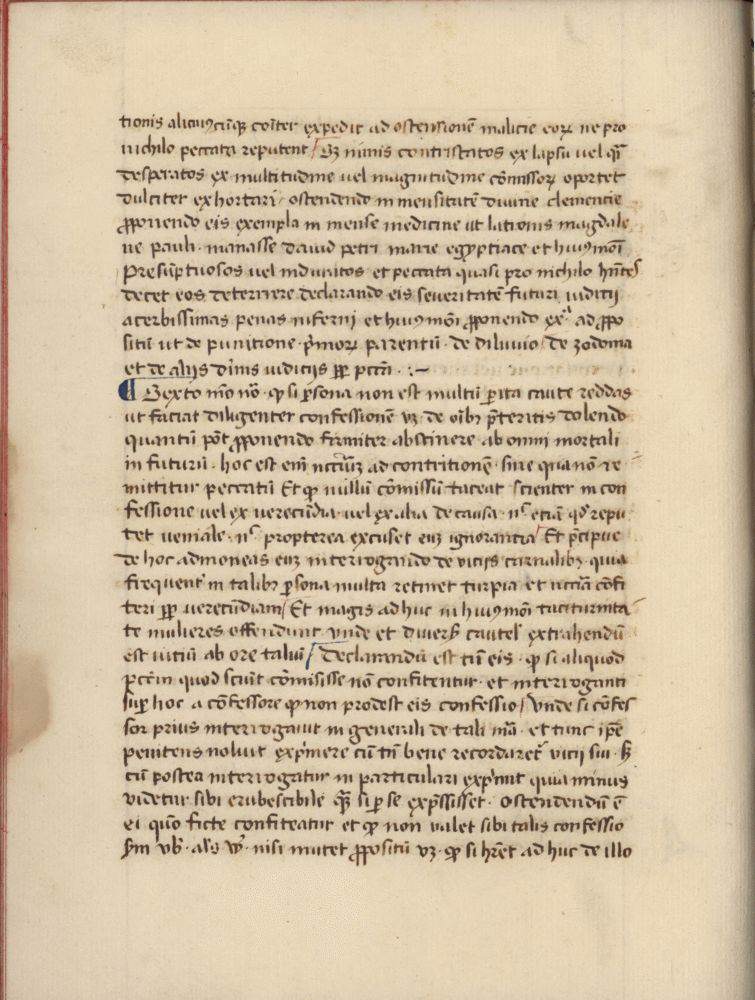 tionis alicuiꝰcūqꝫ cōiter expedit ad ostensionē malicie eoꝝ ne pro
nichilo peccata reputent Sꝫ nimis contristatos ex lapsu uel qͣ
desperatos ex multitudine uel magnitudine cōmissoꝝ oportet
dulciter exhortari ostendendo inmensitatē diuine clemencie
ꝓponendo eis exempla inmense medicine ut latronis magdale
ne pauli · manasse dauid petri marie egyptiace et huiꝰmōi
Presūptuosos uel induratos et peccata quasi pro nichilo hn̄tes
decet eos deterrere declarando eis seueritatē futuri iudicij
acerbissimas penas inferni et huiꝰmōi ꝓponendo exͣ ad ꝓpo
sitū ut de punitione pͥmoꝝ parentū · de diluuio de zodoma
et de alijs diuīs iudicijs ꝓp pctm̄ ·
Sexto mō nō · ꝙ si ꝑsona non est multū ꝑita caute reddas
ut faciat diligenter confessionē vꝫ de oībꝫ p̄teritis dolendo
quantū pōt ꝓponendo firmiter abstinere ab omni mortali
in futurū · hoc est enī ncc̄iūꝫ ad contritionē · sine qua nō re
mittitur peccatū Et ꝙ nullū cōmissū taceat scienter in con
fessione uel ex uerecūdia · uel ex alia de causa · nͥ etiā qd̄ repu
tet ueniale · nͥ propterea excuset eūꝫ ignorancia Et p̄cipue
de hoc admoneas eūꝫ interrogando de vicijs carnalibꝫ · quia
frequent̄ in talibꝫ ꝑsona multa retinet turpia et ncc̄ia cōfi
teri ꝓp uerecūdiam Et magis ad huc in huiꝰmōi taciturnita
te mulieres offendunt vnde et diuersꝭ cautelꝭ extrahendū
est uitiū ab ore taliū Declarandū est tn̄ eis · ꝙ si aliquod
pctm̄ quod sciūt cōmisisse nō confitentur · et interroganti
suꝑ hoc a cōfessore ꝙ non prodest eis confessio Vnde si cōfes
sor prius interrogauit in generali de tali mͣ · et tunc ip̄e
penitens noluit expͥmere cū tn̄ bene recordaret᷑ vicij sui · sꝫ
cū postea interrogatur in particulari expͥmit quia minus
videtur sibi erubescibile qͣꝫ si ꝑ se exp̄ssisset · Ostendendū ē
ei quō ficte confiteatur et ꝙ non ualet sibi talis confessio
nisi mutet ꝓpositū vꝫ · ꝙ si hr̄et ad huc de illo